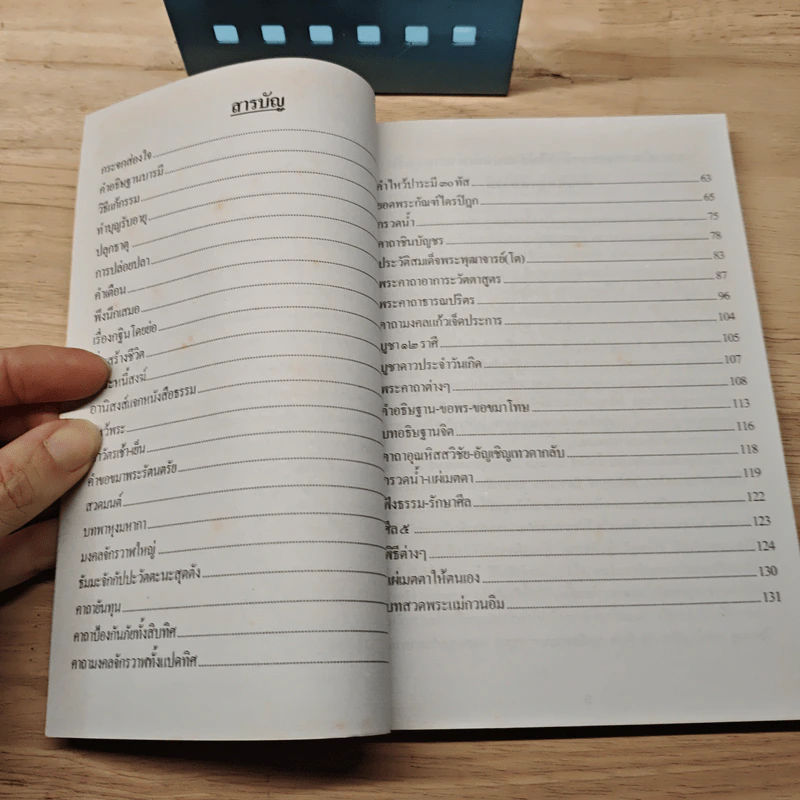 สารบัญ
กระจกส่องใจ
คำอธิษฐานบารมี
วิธีแก้กรรม
ทำบุญรับอายุ
ปลุกธาตุ
การปล่อยปลา
คำเตือน
พึงนึกเสมอ
เรื่องกฐินโดยย่อ
สร้างชีวิต
หนี้สงฆ์
อานิสงส์แจกหนังสือธรรม
ไหว้พระ
วัตรเช้า-เย็น
คำขอขมาพระรัตนตรัย
สวดมนต์
บทพาหุงมหากา
มงคลจักรวาฬใหญ่
ธัมมะจักกัปปะวัตตะนะสุตตัง
คาถายันทุน
คาถาป้องกันภัยทั้งสิบทิศ
คาถามงคลจักรวาฬทั้งแปดทิศ
คำไหว้ปาระมี ๓๐ ทัส 63
ยอดพระกัณฑ์ไตรปิฎก 65
กรวดน้ำ 75
คาถาชินบัญชร 78
ประวัติสมเด็จพระพุฒาจารย์(โต) 83
พระคาถาอาการะวัตตาสูตร 87
พระคาถาธารณปริตร 96
คาถามงคลแก้วเจ็ดประการ 104
บูชา ๑๒ ราศี 105
บูชาดาวประจำวันเกิด 107
พระคาถาต่างๆ 108
คำอธิษฐาน-ขอพร-ขอขมาโทษ 113
บทอธิษฐานจิต 116
คาถาอุณหิสสวิชัย-อัญเชิญเทวดากลับ 118
กรวดน้ำ-แผ่เมตตา 119
ฟังธรรม-รักษาศีล 122
ศีล ๕ 123
พิธีต่างๆ 124
แผ่เมตตาให้ตนเอง 130
บทสวดพระแม่กวนอิม 131